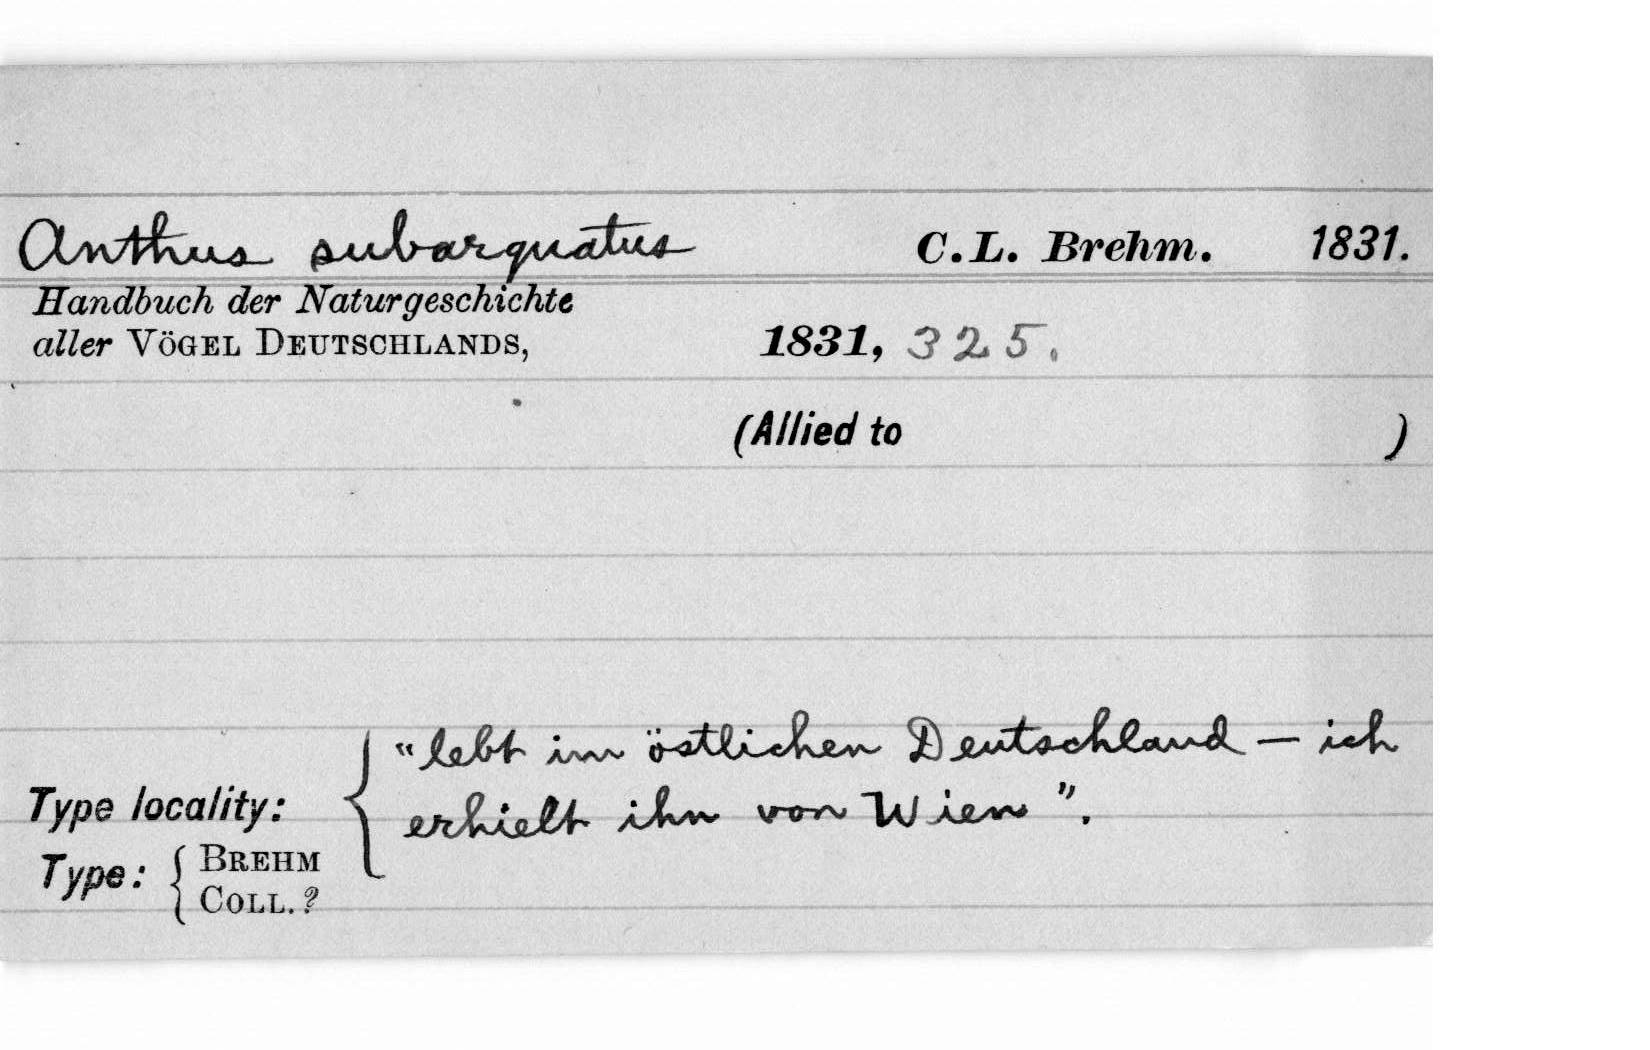 Anthus subarquatus C.L. Brehm. 1831.
Handbuch der Naturgeschichte
aller VÖGEL DEUTSCHLANDS, 1831, 325.
(Allied to )
"lebt im östlichen Deutschland — ich
Type locality: erhielt ihn von Wien".
Type: BREHM
COLL.?